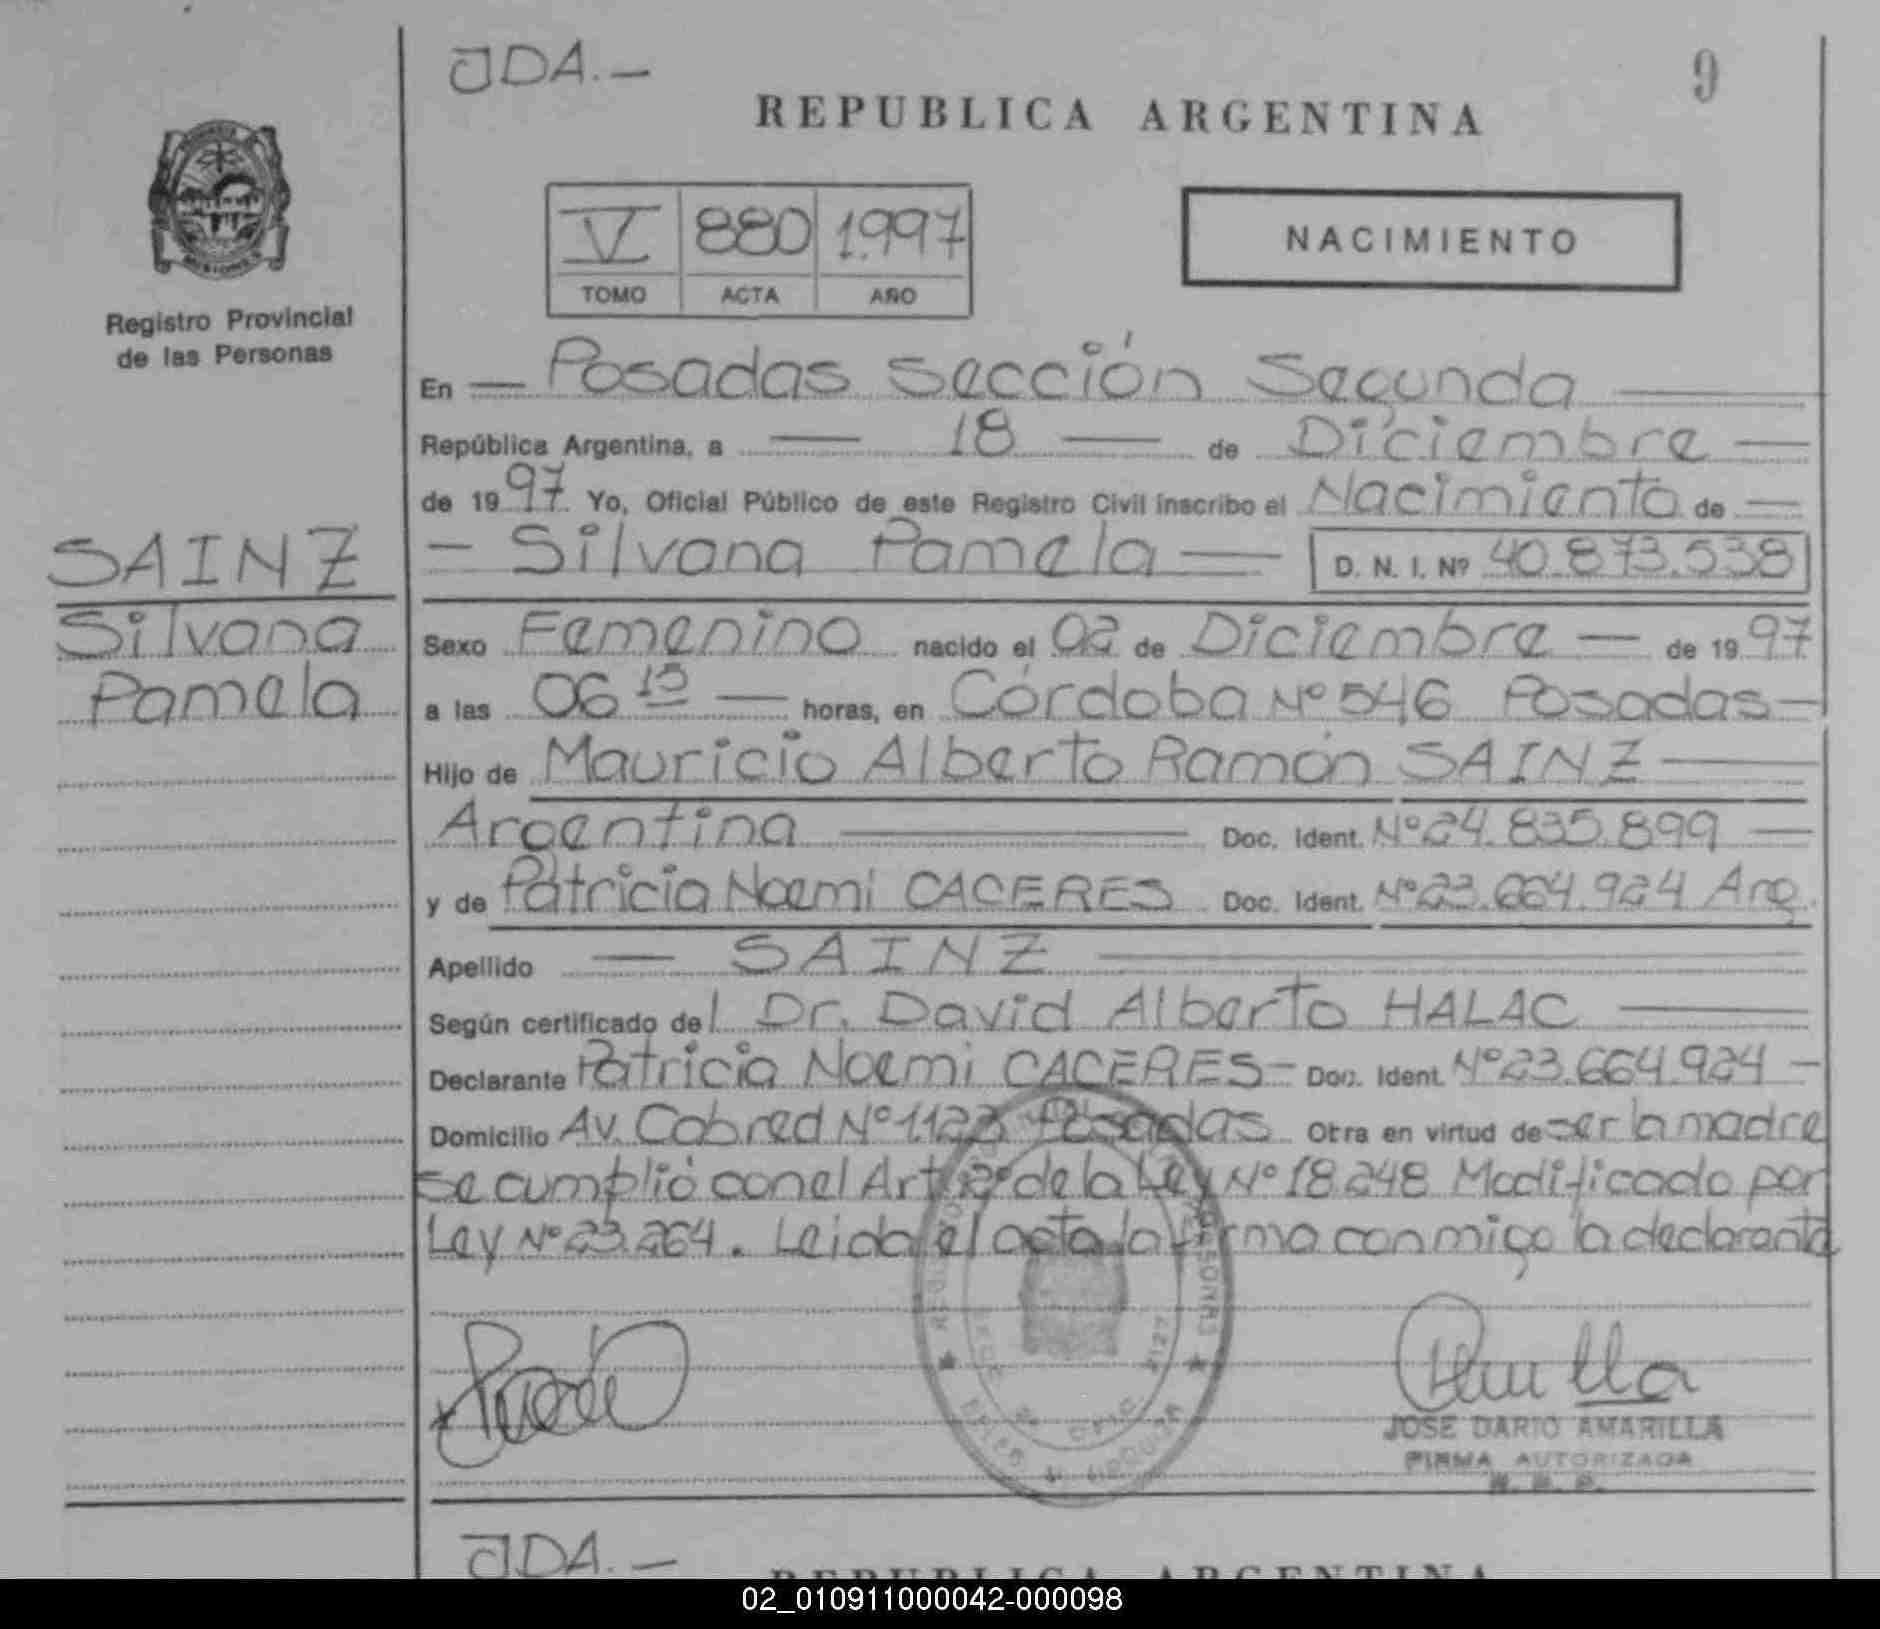 JDA.—
9
REPUBLICA ARGENTINA
V 880 1.997
TOMO ACTA AÑO
NACIMIENTO
Registro Provincial
de las Personas
En — Posadas Sección Segunda —
República Argentina, a — 18 — de Diciembre —
de 1997 Yo, Oficial Público de este Registro Civil inscribo el Nacimiento de —
— Silvana Pamela — D. N. I. Nº 40.873.538
SAINZ
Silvana
Pamela
Sexo Femenino nacido el 02 de Diciembre — de 1997
a las 06 15 — horas, en Córdoba Nº 546 Posadas —
Hijo de Mauricio Alberto Ramón SAINZ —
Argentina — Doc. Ident. Nº 24.835.899 —
y de Patricia Noemi CACERES Doc. Ident. Nº 23.664.924 Arg.
Apellido — SAINZ —
Según certificado del Dr. David Alberto HALAC —
Declarante Patricia Noemi CACERES — Doc. Ident. Nº 23.664.924 —
Domicilio Av. Cabred Nº 1.123 Posadas Otra en virtud de ser la madre
se cumplió con el Art. de la Ley Nº 18.248 Modificado por
Ley Nº 23.264. Leida el acta la firma conmigo la declarante
JOSE DARIO AMARILLA
FIRMA AUTORIZADA
JDA.—
REPUBLICA ARGENTINA
02_010911000042-000098